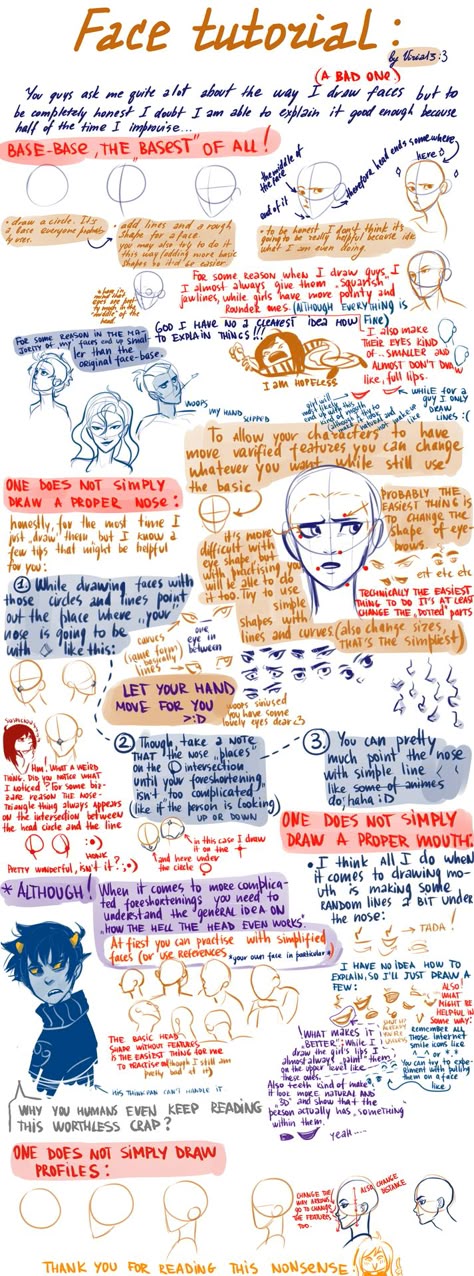 Face tutorial:
by Virials :3
(A BAD ONE)
You guys ask me quite a lot about the way I draw faces but to
be completely honest I doubt I am able to explain it good enough because
half of the time I improvise...
BASE-BASE, THE "BASEST" OF ALL!
the middle of
the face
end of it
therefore head ends somewhere
here
• draw a circle. It's
a base everyone probably
uses.
• add lines and a rough
shape for a face
you may also try to do it
this way (adding more basic
shapes so it'd be easier)
• to be honest I don't think it's
going to be really helpful because idk
what I am even doing
For some reason when I draw guys I
I almost always give them "Squarish"
jawlines, while girls have more pointy and
rounder ones. (Although EVERYTHING is
Fine)
FOR SOME REASON IN THE MA-
JORITY OF my faces end up smal-
ler than the
original face-base.
GOD I HAVE NO A CLEAREST IDEA HOW
TO EXPLAIN THINGS!!!
I AM HOPELESS
I also make
THEIR EYES KIND
OF.. SMALLER AND
ALMOST DON'T DRAW
like, full lips.
WHILE FOR A
GUY I ONLY
DRAW
LINES :(
WOOPS MY HAND
SLIPPED
To allow your characters to have
more varified features you can change
whatever you want while still use
the basic
ONE DOES NOT SIMPLY
DRAW A PROPER NOSE:
honestly, for the most time I
just "draw" them, but I know a
few tips that might be helpful
for you:
PROBABLY THE
EASIEST THING IS
TO CHANGE THE
SHAPE of eye
brows
it's more
difficult with
eye shape, but
with practising you
will be able to do
it too. Try to use
simple
shapes with
lines and curves. (also change sizes,
THAT'S THE SIMPLIEST)
ett etc etc
TECHNICALLY THE EASIEST
THING TO DO IT'S AT LEAST
CHANGE THE "DOTTED" PARTS
① While drawing faces with
those circles and lines point
out the place where "your"
nose is going to be
with ◇ like this:
curves
(same form)
basically
lines
one
eye in
between
LET YOUR HAND
MOVE FOR YOU
>:D
woops sinused
you have some
lovely eyes dear <3
Hm, WHAT A WEIRD
THING, DID YOU NOTICE WHAT
I NOTICED? FOR SOME BIZ-
ZARE REASON THE NOSE-
TRIANGLE THING ALWAYS APPEARS
ON THE INTERSECTION BETWEEN
THE HEAD CIRCLE AND THE LINE
HONK
PRETTY WINDERFUL, ISN'T IT? ;o)
② Though take a NOTE
THAT THE NOSE "places"
on the ⊕ intersection
until your foreshortening
isn't too complicated
(like if the person is looking
UP OR DOWN)
in this case I draw
on the +
and here under
the circle
③ You can pretty
much point the nose
with simple line
like some of animes
do, haha :D
ONE DOES NOT SIMPLY
DRAW A PROPER MOUTH.
• I think all I do when
it comes to drawing mo-
uth is making some
RANDOM lines A BIT UNDER
the nose:
→ TADA!
I HAVE NO IDEA HOW TO
EXPLAIN, SO I'LL JUST DRAW A
FEW:
ALSO!
WHAT
MIGHT BE
HELPFUL IN
SOME WAY:
REMEMBER ALL
THOSE INTERNET
SMILE ICONS LIKE
^_^ or *.*
You can try to expe-
riment with pulling
them on a face
like
* ALTHOUGH!
When it comes to more complica-
ted foreshortenings you need to
understand the general IDEA ON
"HOW THE HELL THE HEAD EVEN WORKS".
At first you can practise with simplified
faces (or use REFERENCES *your own face in particular*)
THE BASIC HEAD
SHAPE WITHOUT FEATURES
IS THE EASIEST THING FOR ME
TO PRACTISE ON (though I still am
pretty bad at it)
WHAT MAKES IT
"BETTER": While I
draw the girl's lips I
almost always "paint" them
on the upper level like
these ones.
Also teeth kind of make
it look more NATURAL AND
"3D" and show that the
person actually has something
within them.
yeah....
HIS THINKPAN CAN'T HANDLE IT
WHY YOU HUMANS EVEN KEEP READING
THIS WORTHLESS CRAP?
ONE DOES NOT SIMPLY DRAW
PROFILES:
CHANGE THE
WAY ARROWS
GO TO CHANGE
THE FEATURES
TOO.
ALSO CHANGE
DISTANCE
THANK YOU FOR READING THIS NONSENSE!